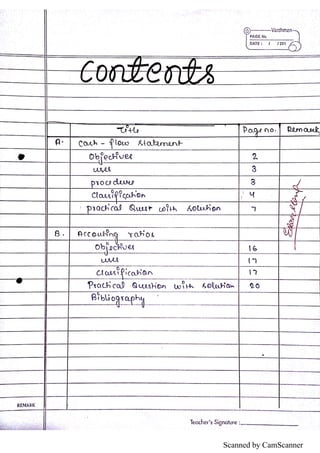 Vardhman
PAGE No.
DATE : / /201
Contents
Title Page no. Remark
A. Cash - flow statement
Objectives 2
uses 3
procedure 3
Classification 4
practical Quest with solution 7
B. Accounting ratios
Objectives 16
uses 17
classification 17
Practical Question with solution 20
Bibliography
REMARK
Teacher's Signature :
Scanned by CamScanner